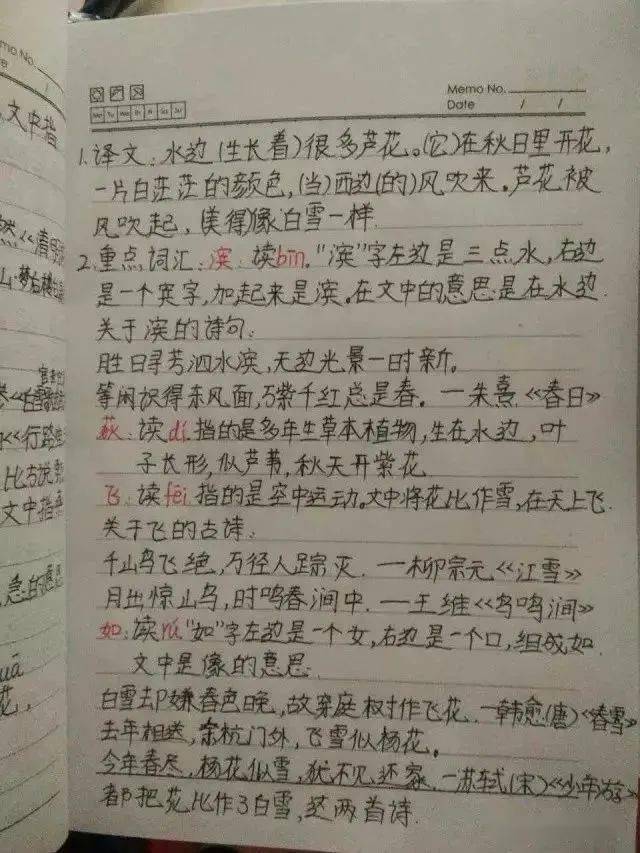 Memo No.
Date / /
Mo Tu We Th Fr Sa Su
1.译文:水边(生长着)很多芦花。(它)在秋日里开花,
一片白茫茫的颜色,(当)西边(的)风吹来。芦花被
风吹起,(美得)像白雪一样.
2.重点词汇:滨:读bīn."滨"字左边是三点水,右边
是一个宾字,加起来是滨。在文中的意思是在水边.
关于滨的诗句:
胜日寻芳泗水滨,无边光景一时新。
等闲识得东风面,万紫千红总是春。—朱熹《春日》
荻:读dí.指的是多年生草本植物,生在水边,叶
子长形,似芦苇,秋天开紫花.
飞:读fēi 指的是空中运动.文中将花比作雪,在天上飞.
关于飞的古诗:
千山鸟飞绝,万径人踪灭.—柳宗元《江雪》
月出惊山鸟,时鸣春涧中.—王维《鸟鸣涧》
如:读rú"如"字左边是一个女,右边是一个口,组成如.
文中是像的意思.
白雪却嫌春色晚,故穿庭树作飞花.—韩愈(唐)《春雪》
去年相送,余杭门外,飞雪似杨花。
今年春尽,杨花似雪,犹不见还家.—苏轼(宋)《少年游》
都把花比作了白雪,这两首诗.
mo No.
文中指
《清明
山·梦
《行路
比方说
文中指
急的意思
花,